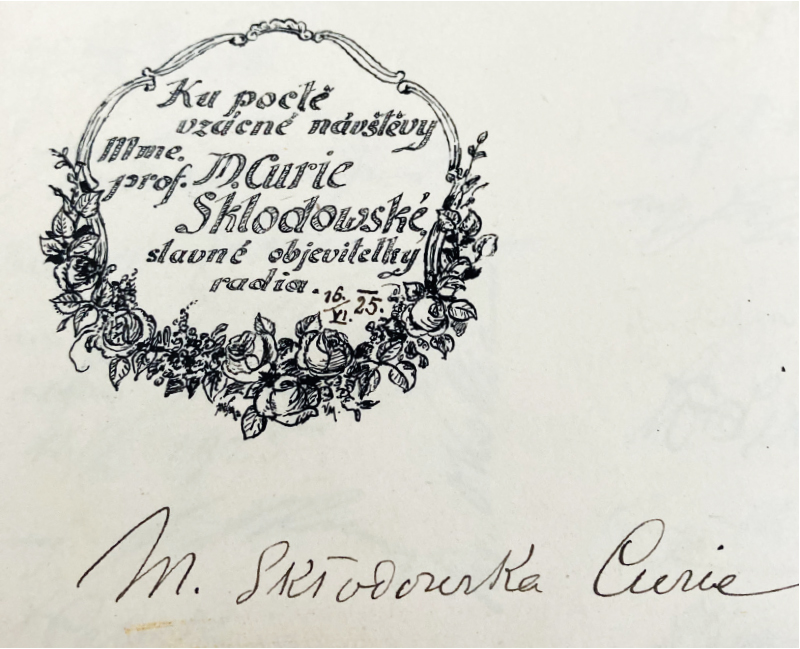 Ku poctě
vzácné návštěvy
Mme.
prof. M. Curie
Skłodowské,
slavné objevitelky
radia.
16. 25.
VI.
M. Skłodowska Curie